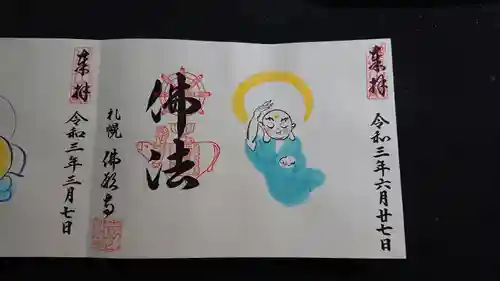 奉拝
令和三年六月廿七日
佛法
札幌 佛願寺
奉拝
令和三年三月七日